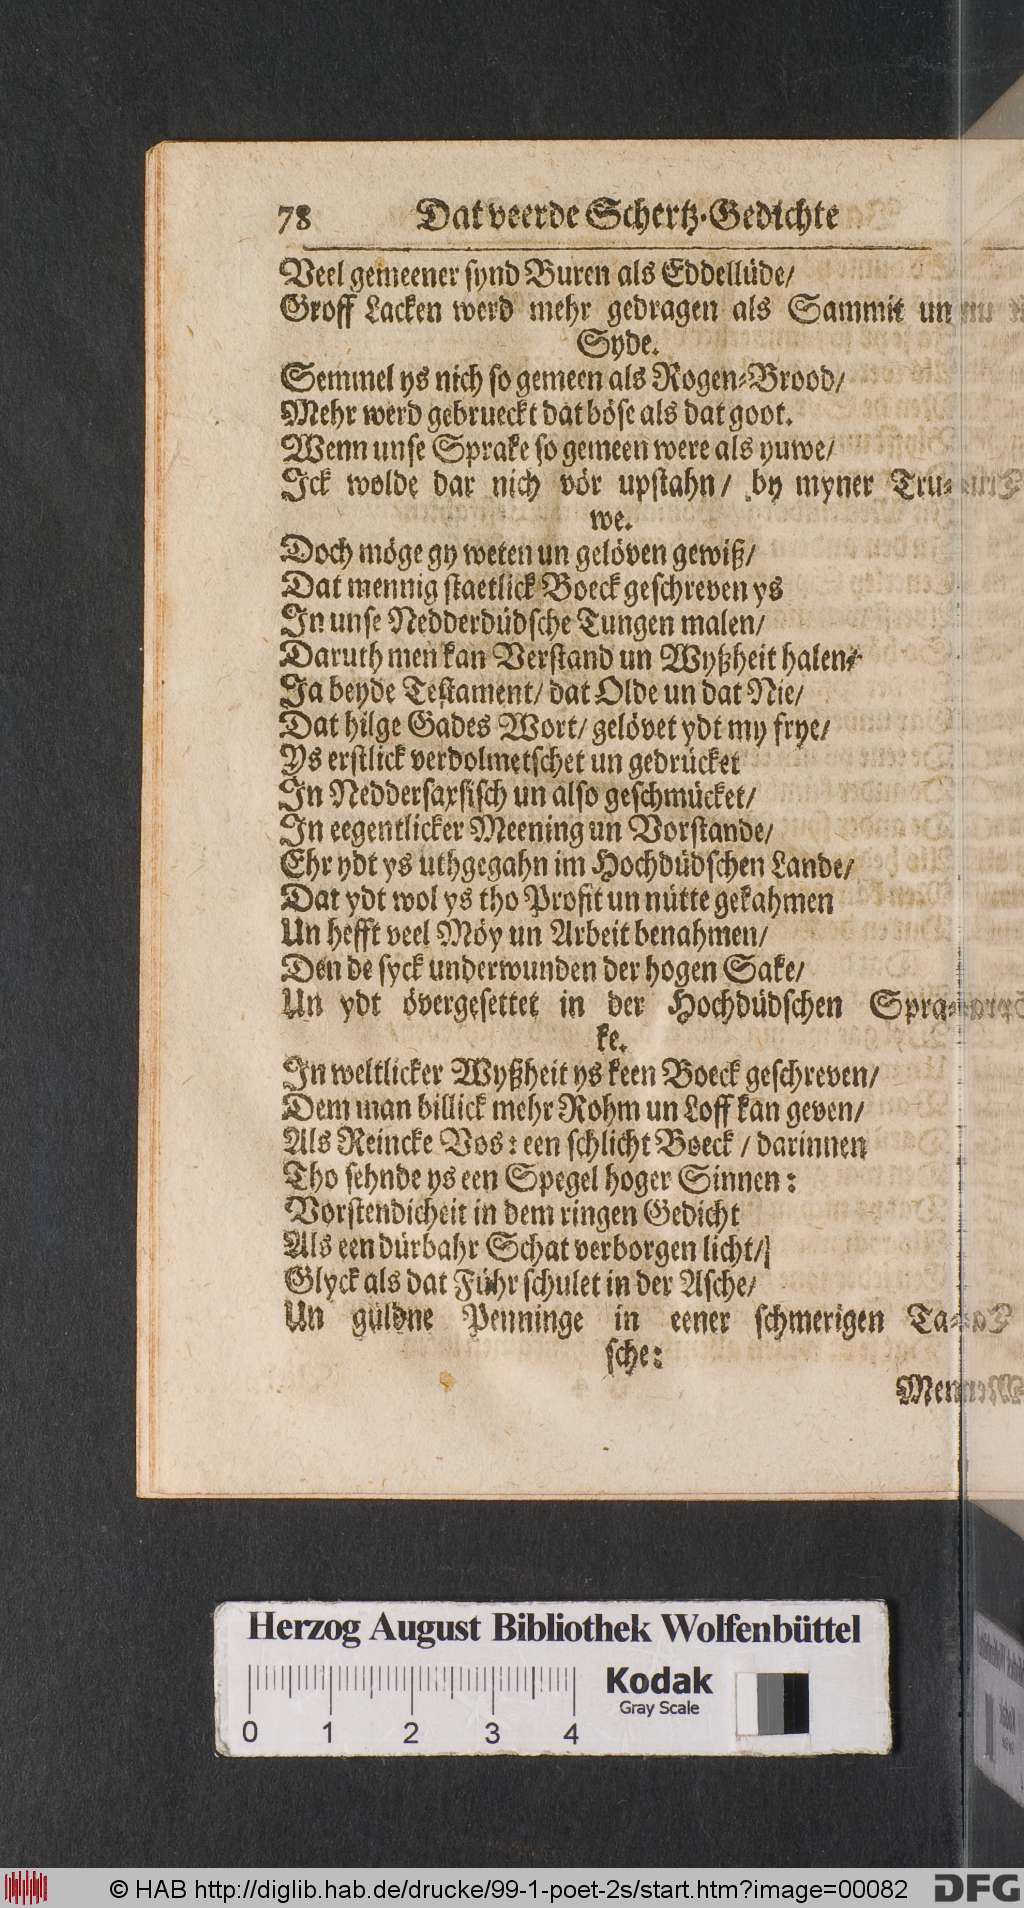 78 Dat veerde Schertz-Gedichte
Veel gemeener synd Buren als Eddellüde/
Groff Lacken werd mehr gedragen als Sammit un
Syde.
Semmel ys nich so gemeen als Rogen-Brood/
Mehr werd gebrueckt dat böse als dat goot.
Wenn unse Sprake so gemeen were als yuwe/
Ick wolde dar nich vör upstahn/ by myner Tru-
we.
Doch möge gy weten un gelöven gewiß/
Dat mennig staetlick Boeck geschreven ys
In unse Nedderdüdsche Tungen malen/
Daruth men kan Verstand un Wyßheit halen/
Ja beyde Testament/ dat Olde un dat Nie/
Dat hilge Gades Wort/ gelövet ydt my frye/
Ys erstlick verdolmetschet un gedrücket
In Neddersaxsisch un also geschmücket/
In eegentlicker Meening un Vorstande/
Ehr ydt ys uthgegahn im Hochdüdschen Lande/
Dat ydt wol ys tho Profit un nütte gekahmen
Un hefft veel Möy un Arbeit benahmen/
Den de syck underwunden der hogen Sake/
Un ydt övergesettet in der Hochdüdschen Spra-
ke.
In weltlicker Wyßheit ys keen Boeck geschreven/
Dem man billick mehr Rohm un Loff kan geven/
Als Reincke Vos: een schlicht Boeck / darinnen
Tho sehnde ys een Spegel hoger Sinnen:
Vorstendicheit in dem ringen Gedicht
Als een dürbahr Schat verborgen licht/
Glyck als dat Führ schulet in der Asche/
Un güldne Penninge in eener schmerigen Ta-
sche:
Men
Herzog August Bibliothek Wolfenbüttel
Kodak
Gray Scale
0 1 2 3 4
© HAB http://diglib.hab.de/drucke/99-1-poet-2s/start.htm?image=00082
DFG